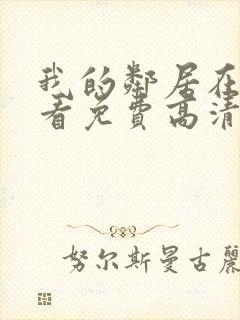 我的鄰居在
看免費高清
努尔斯曼古麗